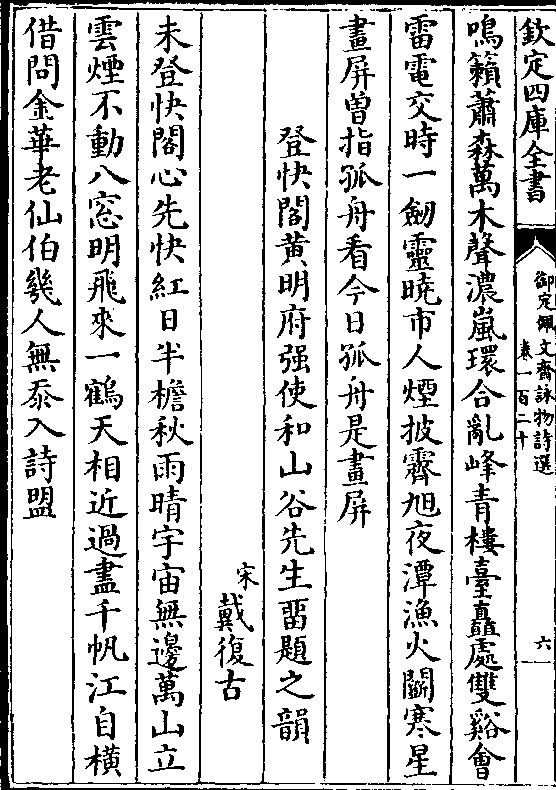 欽定四庫全書
御定佩文齋詠物詩選
卷一百二十
六
鳴籟蕭森萬木聲濃嵐環合亂峰青樓臺矗處雙谿會
雷電交時一劒靈曉市人煙披霽旭夜潭漁火鬬寒星
畫屏曽指孤舟看今日孤舟是畫屏
登快閣黄明府强使和山谷先生畱題之韻
宋 戴復古
未登快閣心先快紅日半檐秋雨晴宇宙無邊萬山立
雲煙不動八窓明飛來一鶴天相近過盡千帆江自橫
借問金華老仙伯幾人無忝入詩盟